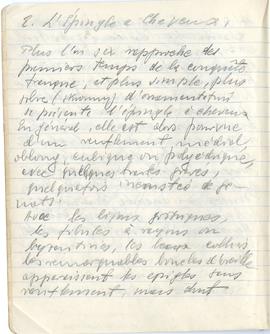 2. L'Épingle à cheveux.
Plus l'on se rapproche des
premiers temps de la conquête
franque, et plus simple, plus
sobre d'ornementation
se présente l'épingle à cheveux
En général, elle est alors pourvue
d'un renflement médial,
oblong, cubique ou polyédrique,
avec quelques traits gravés,
quelquefois incrusté de gre-
nats.
Avec les bijoux gothiques,
les fibules à rayons ou
byzantines, les beaux colliers,
les remarquables boucles d'oreille
apparaissent les épingles sans
renflement, mais dont